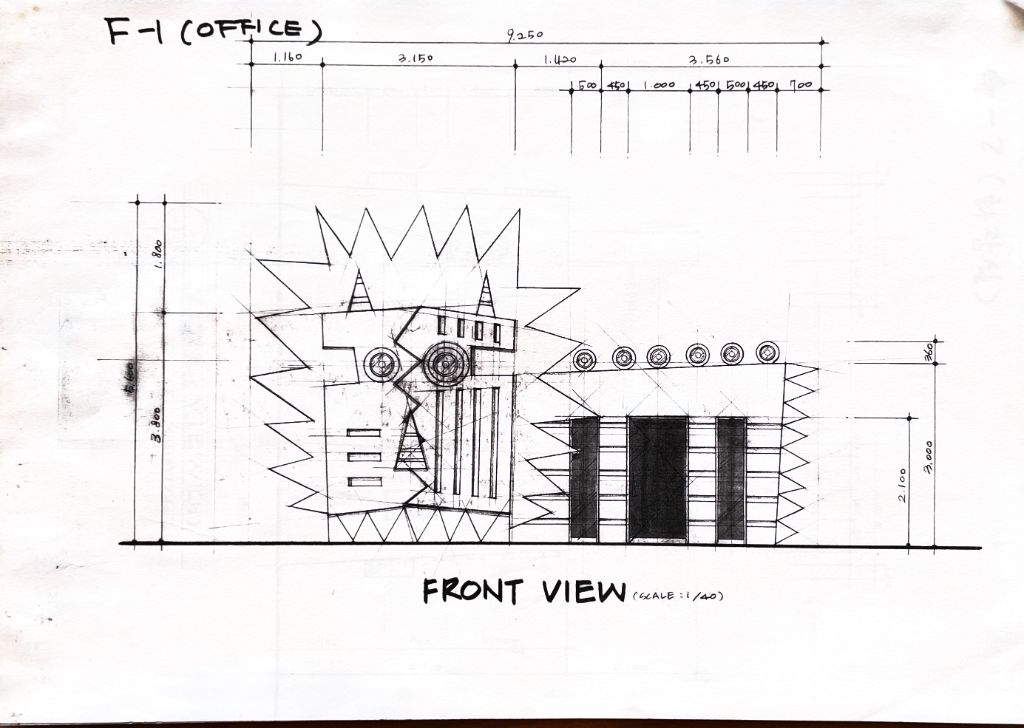 F-1 (OFFICE)
9.250
1.160 3.150 1.420 3.560
500 450 1.000 450 500 450 700
1.800
3.800
360
3.000
2.100
FRONT VIEW (SCALE : 1/40)